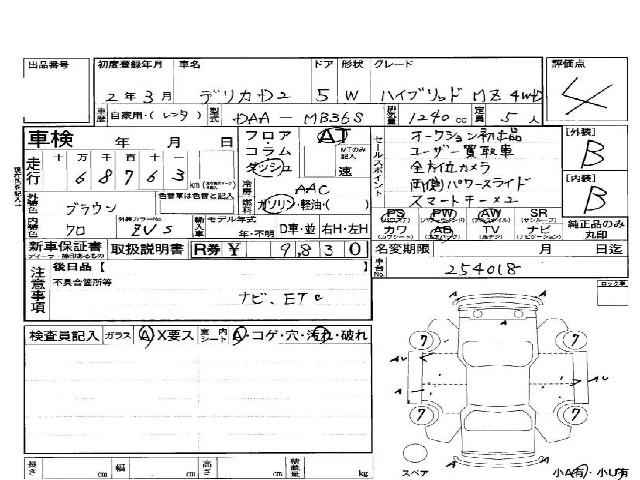 出品番号
初度登録年月 車名 ドア 形状 グレード
2年3月 デリカD2 5 W ハイブリッド MZ 4WD
評価点
4
車歴 自家用・(レンタ) 型式 DAA-MB36S 排気量 1240cc 定員 5人
車検 年 月 日
走行 十 万 千 百 十 一
6 8 7 6 3 km
フロア・コラム・ダッシュ
AT
MTのみ記入
速
冷房 AAC
燃料 ガソリン・軽油・( )
セールスポイント
オークション初出品
ユーザー買取車
全方位カメラ
両側パワースライド
スマートキー×2
[外装]
B
[内装]
B
外装色 ブラウン 色替車は色替と記入
内装色 クロ 外装カラーNo. ZVS 輸入車 モデル年式 年・不明 D車・並 右H・左H
PS PW AW SR
(パワステ) (パワーウィンドウ) (アルミホイール) (サンルーフ)
カワ AB TV ナビ
(カワシート) (エアバッグ) (テレビ) (ナビゲーション)
純正品のみ丸印
新車保証書 取扱説明書 R券 ¥ 9,830
名変期限 月 日迄
注意事項
後日品【 】
不具合箇所等
ナビ、ETC
車台No. 254018
ロック車
検査員記入 ガラス A X要ス 室内 シート A・コゲ・穴・汚れ・破れ
A A
7 7
AU AU
A A
7 7
A A
スペア 小A有・小U有
長さ cm 幅 cm 高さ cm 積載量 kg